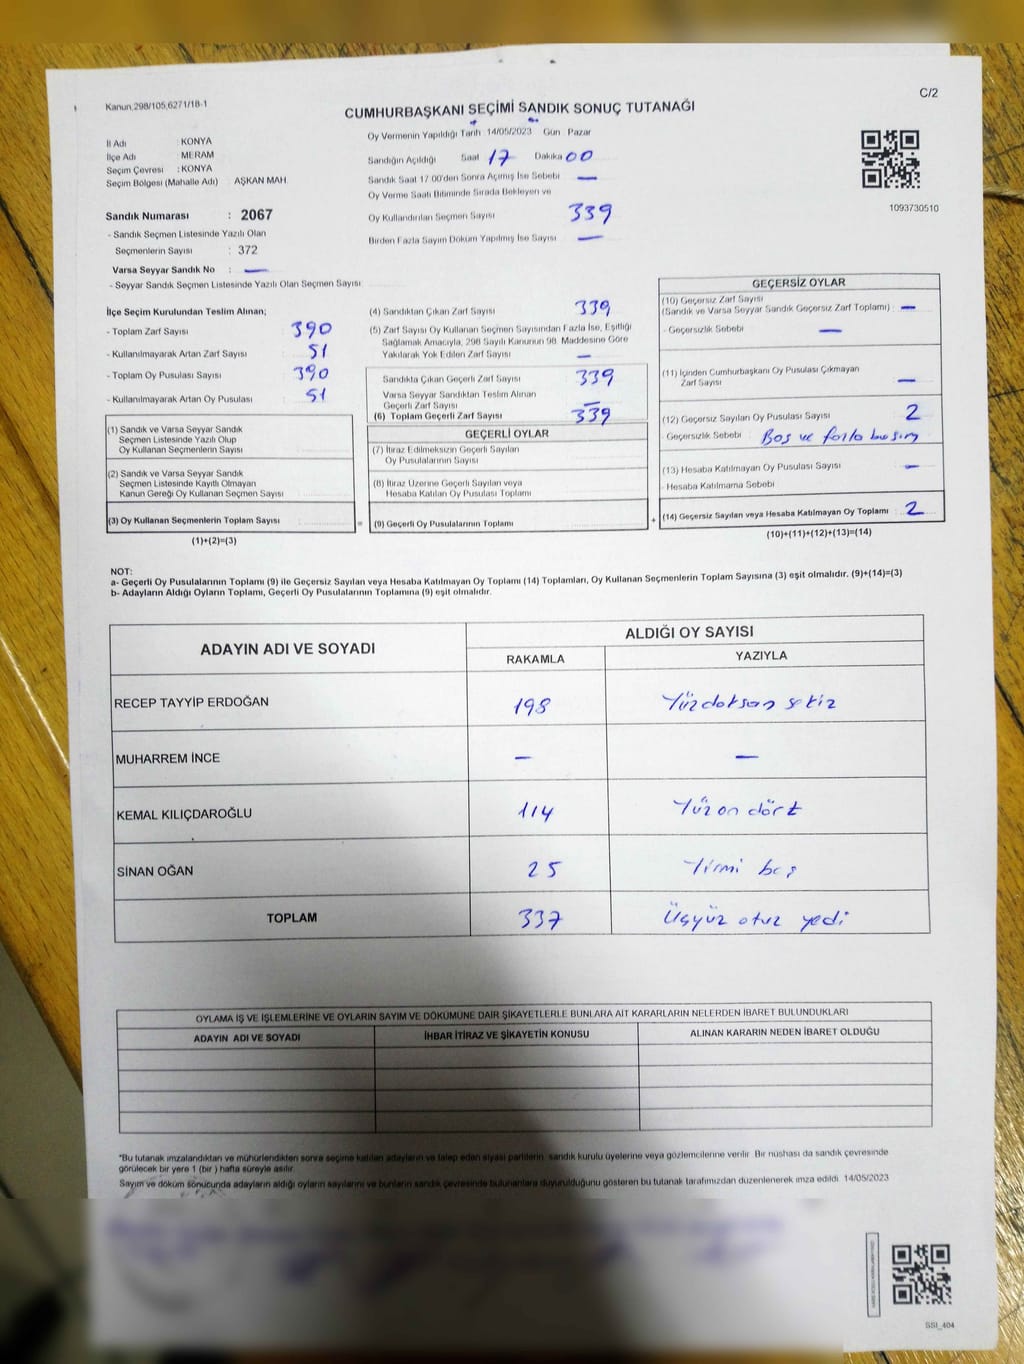 Kanun,298/105,6271/18-1
C/2
CUMHURBAŞKANI SEÇİMİ SANDIK SONUÇ TUTANAĞI
İl Adı : KONYA
İlçe Adı : MERAM
Seçim Çevresi : KONYA
Seçim Bölgesi (Mahalle Adı) : AŞKAN MAH.
Sandık Numarası : 2067
- Sandık Seçmen Listesinde Yazılı Olan
Seçmenlerin Sayısı : 372
Varsa Seyyar Sandık No : —
- Seyyar Sandık Seçmen Listesinde Yazılı Olan Seçmen Sayısı
Oy Vermenin Yapıldığı Tarih 14/05/2023 Gün Pazar
Sandığın Açıldığı Saat 17 Dakika 00
Sandık Saat 17.00'den Sonra Açılmış İse Sebebi —
Oy Verme Saati Bitiminde Sırada Bekleyen ve
Oy Kullandırılan Seçmen Sayısı 339
Birden Fazla Sayım Döküm Yapılmış İse Sayısı —
1093730510
İlçe Seçim Kurulundan Teslim Alınan;
- Toplam Zarf Sayısı : 390
- Kullanılmayarak Artan Zarf Sayısı : 51
- Toplam Oy Pusulası Sayısı : 390
- Kullanılmayarak Artan Oy Pusulası : 51
(1) Sandık ve Varsa Seyyar Sandık
Seçmen Listesinde Yazılı Olup
Oy Kullanan Seçmenlerin Sayısı
(2) Sandık ve Varsa Seyyar Sandık
Seçmen Listesinde Kayıtlı Olmayan
Kanun Gereği Oy Kullanan Seçmen Sayısı
(3) Oy Kullanan Seçmenlerin Toplam Sayısı
(1)+(2)=(3)
(4) Sandıktan Çıkan Zarf Sayısı 339
(5) Zarf Sayısı Oy Kullanan Seçmen Sayısından Fazla İse, Eşitliği
Sağlamak Amacıyla, 298 Sayılı Kanunun 98. Maddesine Göre
Yakılarak Yok Edilen Zarf Sayısı —
Sandıkta Çıkan Geçerli Zarf Sayısı 339
Varsa Seyyar Sandıktan Teslim Alınan
Geçerli Zarf Sayısı —
(6) Toplam Geçerli Zarf Sayısı 339
GEÇERLİ OYLAR
(7) İtiraz Edilmeksizin Geçerli Sayılan
Oy Pusulalarının Sayısı
(8) İtiraz Üzerine Geçerli Sayılan veya
Hesaba Katılan Oy Pusulası Toplamı
= (9) Geçerli Oy Pusulalarının Toplamı
GEÇERSİZ OYLAR
(10) Geçersiz Zarf Sayısı
(Sandık ve Varsa Seyyar Sandık Geçersiz Zarf Toplamı) : —
- Geçersizlik Sebebi —
(11) İçinden Cumhurbaşkanı Oy Pusulası Çıkmayan
Zarf Sayısı —
(12) Geçersiz Sayılan Oy Pusulası Sayısı : 2
- Geçersizlik Sebebi : Boş ve fazla basım
(13) Hesaba Katılmayan Oy Pusulası Sayısı : —
- Hesaba Katılmama Sebebi
+ (14) Geçersiz Sayılan veya Hesaba Katılmayan Oy Toplamı : 2
(10)+(11)+(12)+(13)=(14)
NOT:
a- Geçerli Oy Pusulalarının Toplamı (9) ile Geçersiz Sayılan veya Hesaba Katılmayan Oy Toplamı (14) Toplamları, Oy Kullanan Seçmenlerin Toplam Sayısına (3) eşit olmalıdır. (9)+(14)=(3)
b- Adayların Aldığı Oyların Toplamı, Geçerli Oy Pusulalarının Toplamına (9) eşit olmalıdır.
ADAYIN ADI VE SOYADI
ALDIĞI OY SAYISI
RAKAMLA YAZIYLA
RECEP TAYYİP ERDOĞAN 198 Yüzdoksan sekiz
MUHARREM İNCE — —
KEMAL KILIÇDAROĞLU 114 Yüz on dört
SİNAN OĞAN 25 Yirmi beş
TOPLAM 337 Üçyüz otuz yedi
OYLAMA İŞ VE İŞLEMLERİNE VE OYLARIN SAYIM VE DÖKÜMÜNE DAİR ŞİKAYETLERLE BUNLARA AİT KARARLARIN NELERDEN İBARET BULUNDUKLARI
ADAYIN ADI VE SOYADI İHBAR İTİRAZ VE ŞİKAYETİN KONUSU ALINAN KARARIN NEDEN İBARET OLDUĞU
*Bu tutanak imzalandıktan ve mühürlendikten sonra seçime katılan adayların ve talep eden siyasi partilerin sandık kurulu üyelerine veya gözlemcilerine verilir. Bir nüshası da sandık çevresinde
görülecek bir yere 1 (bir ) hafta süreyle asılır.
Sayım ve döküm sonucunda adayların aldığı oyların sayılarını ve bunların sandık çevresinde bulunanlara duyurulduğunu gösteren bu tutanak tarafımızdan düzenlenerek imza edildi. 14/05/2023
SSI_404